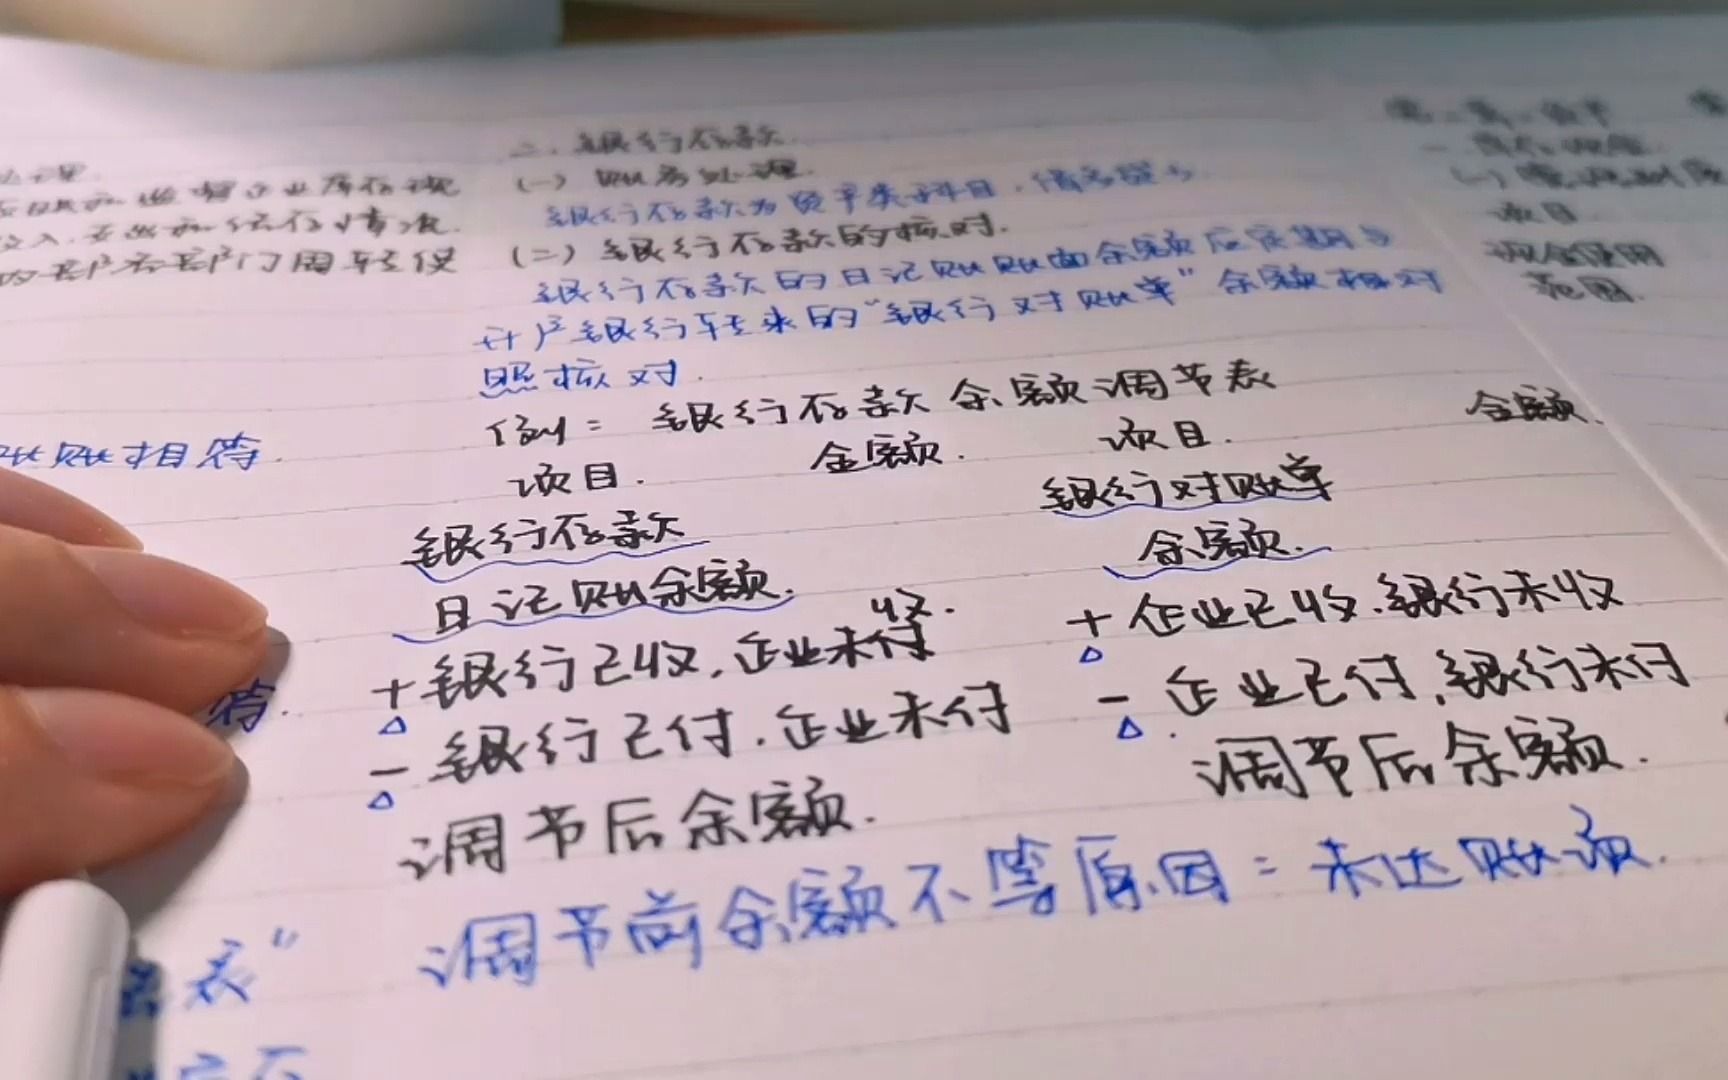 二、银行存款
(一) 账务处理.
银行存款为资产类科目,借多贷少
(二) 银行存款的核对.
银行存款的日记账账面余额应定期与
开户银行转来的“银行对账单”余额相对
照核对.
例: 银行存款余额调节表
项目. 金额. 项目. 金额.
银行存款
日记账余额.
银行对账单
余额.
收.
+ 银行已收,企业未付
- 银行已付.企业未付
调节后余额.
+ 企业已收.银行未收
- 企业已付,银行未付
调节后余额.
调节前余额不等原因: 未达账项.
账账相符.
符.
表”
项目
现金使用
范围.